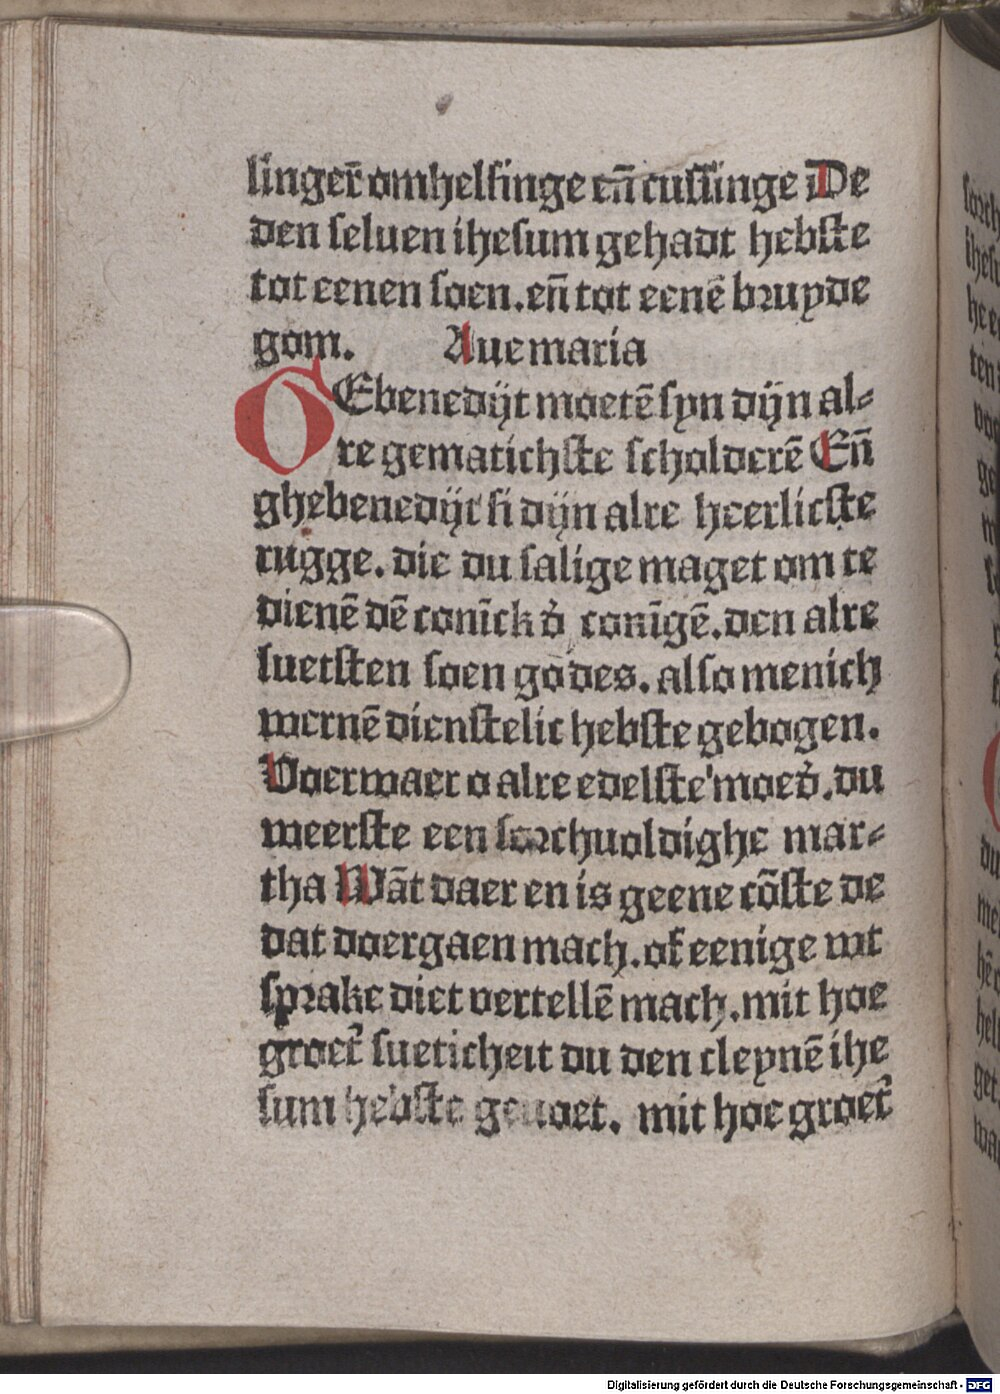 linger̃ omhelsinge en̄ cussinge De
den seluen ihesum gehadt hebste
tot eenen soen. en̄ tot eenē bruyde
gom. Aue maria
GEbenedijt moetē syn dijn al⸗
re gematichste scholderē En̄
ghebenedijt si dijn alre heerlicste
rugge. die du salige maget om te
dienē dē conīck d̕ conīgē. den alre
suetsten soen godes. also menich
wernē dienstelic hebste gebogen.
Voerwaer o alre edelste moed̕. du
weerste een sorchuoldighe mar⸗
tha Wāt daer en is geene cōste de
dat doergaen mach. of eenige wt
sprake diet vertellē mach. mit hoe
groet̃ sueticheit du den cleynē ihe
sum hebste geuoet. mit hoe groet̃